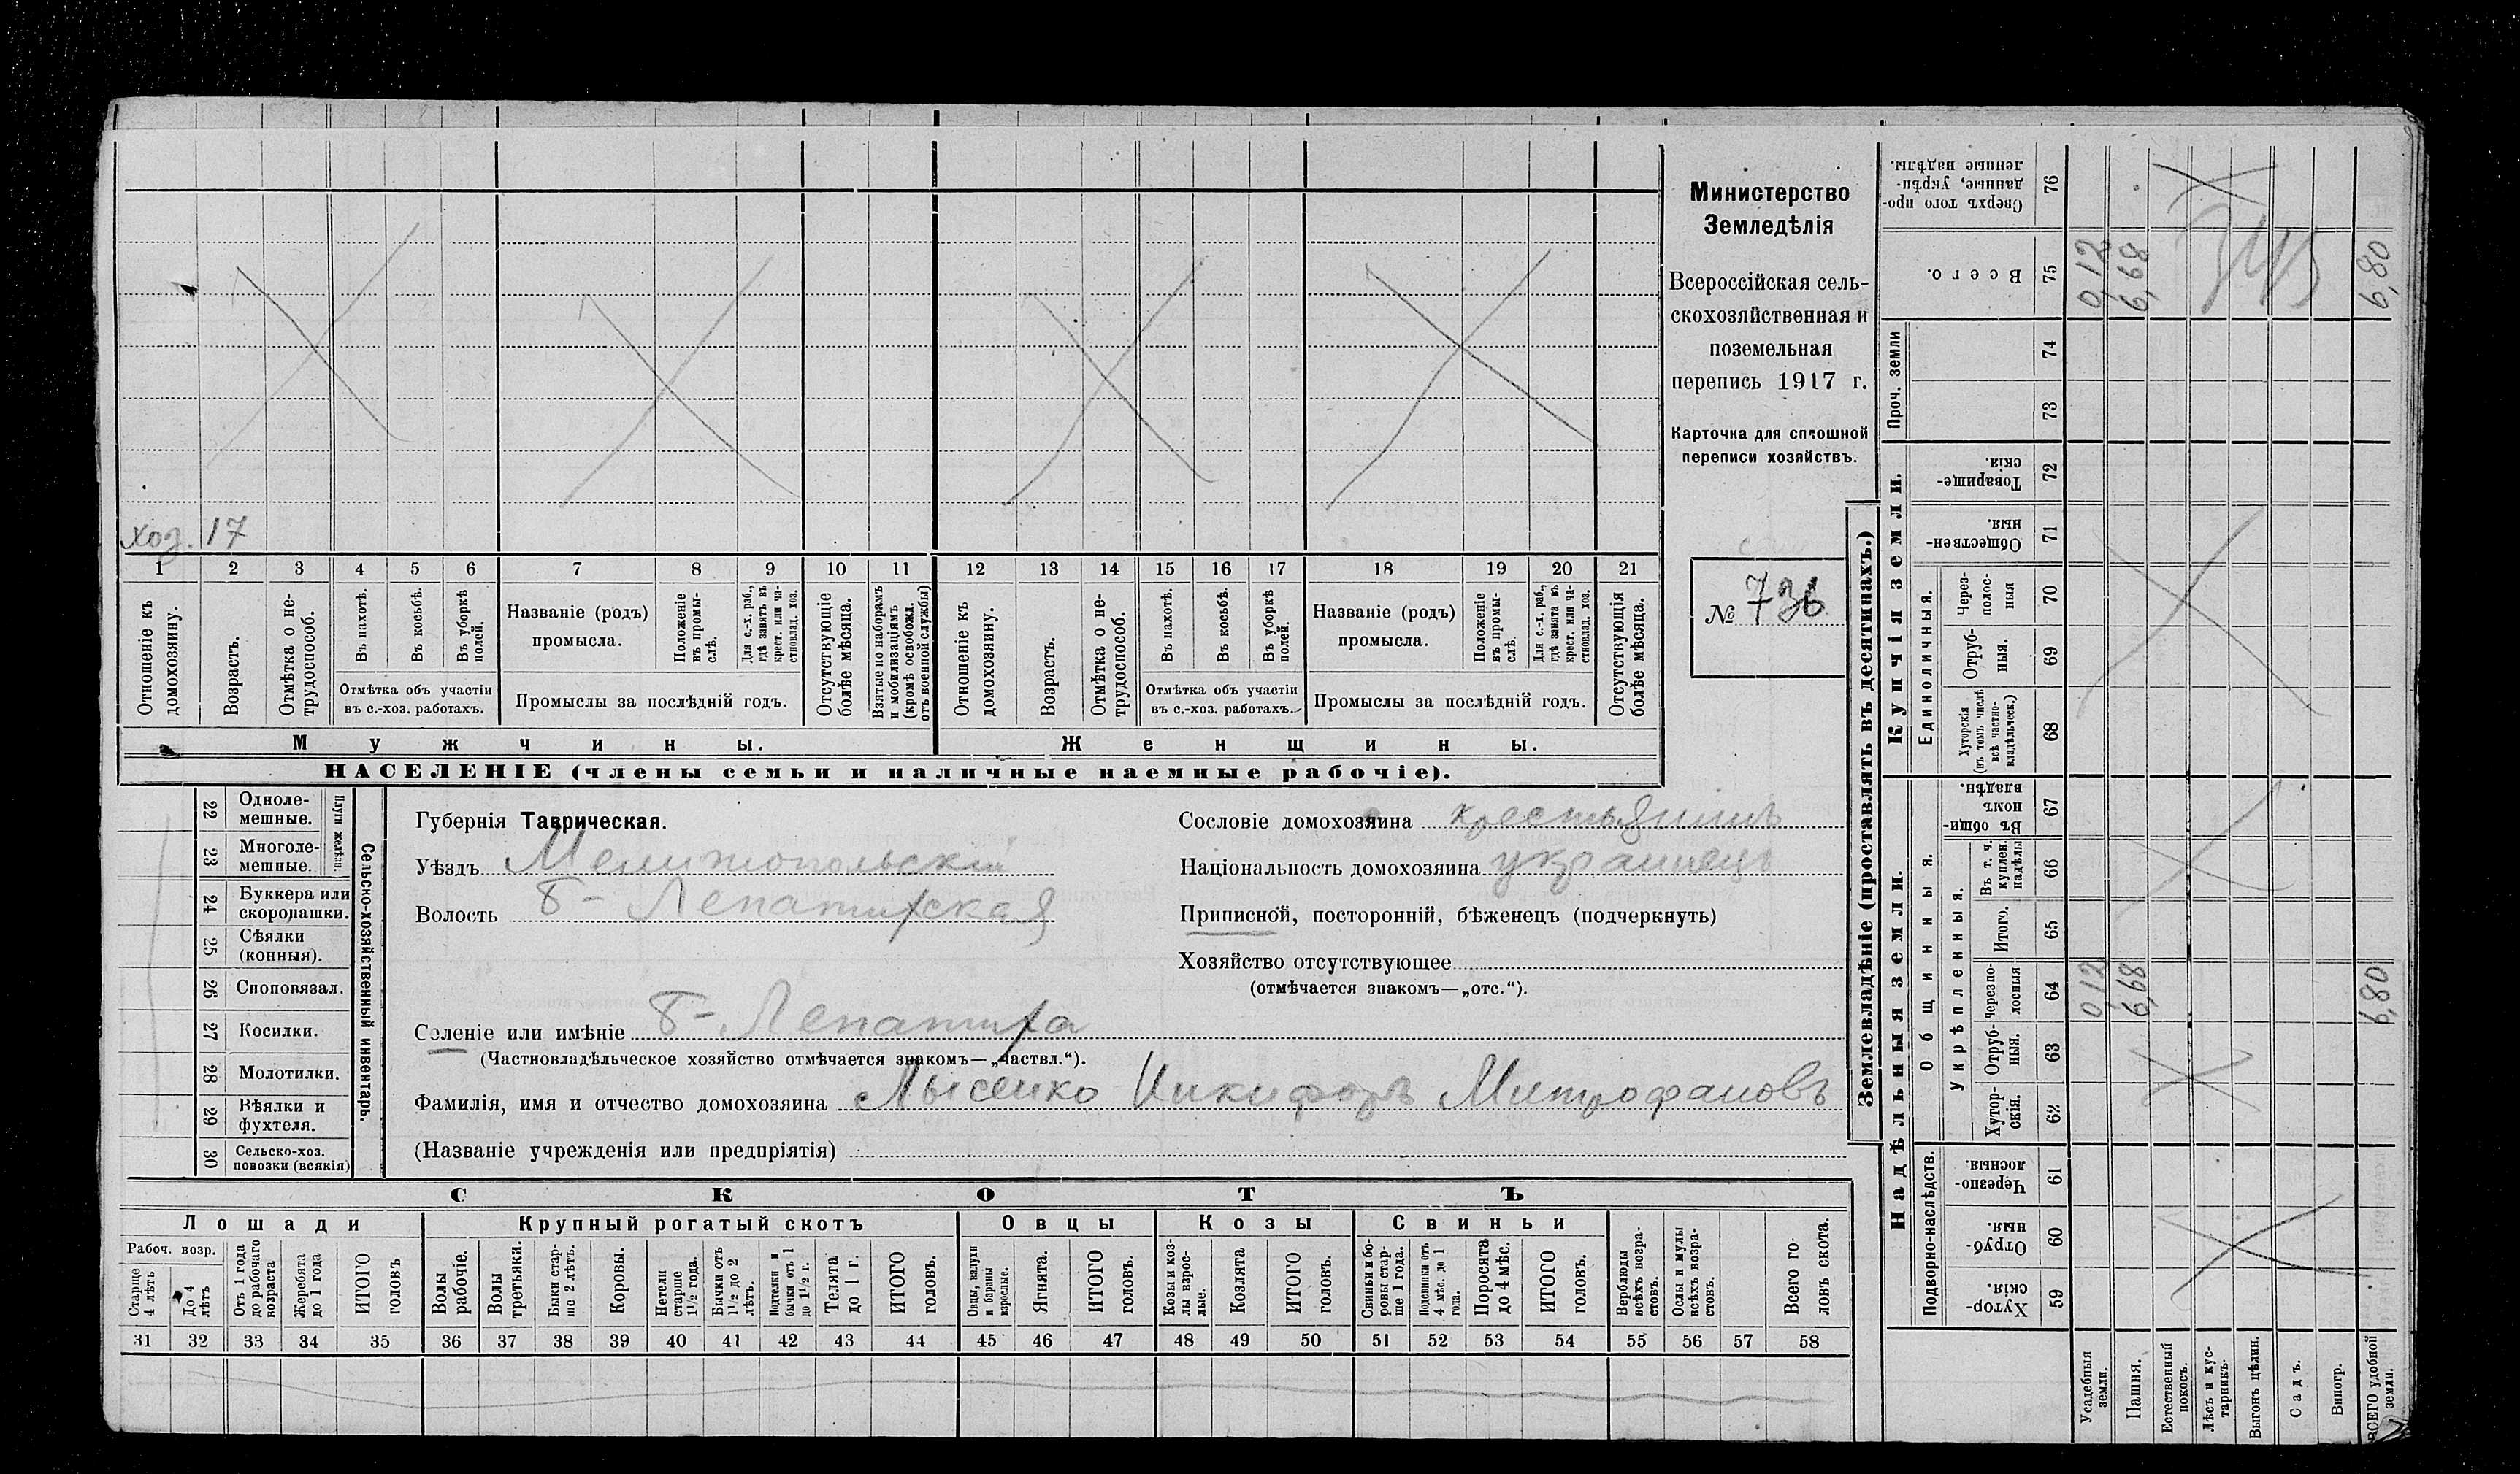 Министерство
Земледѣлія
Всероссійская сель-
скохозяйственная и
поземельная
перепись 1917 г.
Карточка для сплошной
переписи хозяйствъ.
№ 736
хоз. 17
1 2 3 4 5 6 7 8 9 10 11 12 13 14 15 16 17 18 19 20 21
Отношеніе къ домохозяину.
Возрастъ.
Отмѣтка о не-трудоспособ.
Въ пахотѣ.
Въ косьбѣ.
Въ уборкѣ полей.
Отмѣтка объ участіи
въ с.-хоз. работахъ.
Названіе (родъ)
промысла.
Положеніе въ промы-слѣ.
Для с.-х. раб., гдѣ занятъ въ крест. или ча-стновлад. хоз.
Промыслы за послѣдній годъ.
Отсутствующіе болѣе мѣсяца.
Взятые по наборамъ и мобилизаціямъ (кромѣ освобожд. отъ военной службы)
Отношеніе къ домохозяину.
Возрастъ.
Отмѣтка о не-трудоспособ.
Въ пахотѣ.
Въ косьбѣ.
Въ уборкѣ полей.
Отмѣтка объ участіи
въ с.-хоз. работахъ.
Названіе (родъ)
промысла.
Положеніе въ промы-слѣ.
Для с.-х. раб., гдѣ занята въ крест. или ча-стновлад. хоз.
Промыслы за послѣдній годъ.
Отсутствующія болѣе мѣсяца.
Мужчины.
Женщины.
НАСЕЛЕНІЕ (члены семьи и наличные наемные рабочіе).
Сельско-хозяйственный инвентарь.
Плуги желѣзн.
22 Одноле-мешные.
23 Многоле-мешные.
24 Буккера или скоропашки.
25 Сѣялки (конныя).
26 Сноповязал.
27 Косилки.
28 Молотилки.
29 Вѣялки и фухтеля.
30 Сельско-хоз. повозки (всякія)
Губернія Таврическая.
Уѣздъ Мелитопольскій
Волость Б-Лепатихская
Селеніе или имѣніе Б-Лепатиха
(Частновладѣльческое хозяйство отмѣчается знакомъ—„частвл.“).
Фамилія, имя и отчество домохозяина Лысенко Никифоръ Митрофановъ
(Названіе учрежденія или предпріятія)
Сословіе домохозяина крестьянинъ
Національность домохозяина украинецъ
Приписной, посторонній, бѣженецъ (подчеркнуть)
Хозяйство отсутствующее
(отмѣчается знакомъ—„отс.“).
СКОТЪ
Лошади
Крупный рогатый скотъ
Овцы
Козы
Свиньи
Рабоч. возр.
Старше 4 лѣтъ
До 4 лѣтъ
Отъ 1 года до рабочаго возраста
Жеребята до 1 года
ИТОГО головъ
Волы рабочіе.
Волы третьяки.
Быки стар-ше 2 лѣтъ.
Коровы.
Нетели старше 1½ года.
Бычки отъ 1½ до 2 лѣтъ.
Подтелки и бычки отъ 1 до 1½ г.
Телята до 1 г.
ИТОГО головъ.
Овцы, валухи и бараны взрослые.
Ягнята.
ИТОГО головъ.
Козы и коз-лы взрос-лые.
Козлята
ИТОГО головъ.
Свиньи и бо-ровы стар-ше 1 года.
Подсвинки отъ 4 мѣс. до 1 года.
Поросята до 4 мѣс.
ИТОГО головъ.
Верблюды всѣхъ возра-стовъ.
Ослы и мулы всѣхъ возра-стовъ.
Всего го-ловъ скота.
31 32 33 34 35 36 37 38 39 40 41 42 43 44 45 46 47 48 49 50 51 52 53 54 55 56 57 58
Землевладѣніе (проставлять въ десятинахъ.)
Надѣльныя земли.
Подворно-наслѣдств.
59 Хутор-скія.
60 Отруб-ныя.
61 Черезпо-лосныя.
Общинныя.
Укрѣпленныя.
62 Хутор-скія.
63 Отруб-ныя.
64 Черезпо-лосныя
0,12
6,68
6,80
65 Итого.
66 Въ т. ч. куплен. надѣлы
67 Въ общи-номъ владѣн.
Купчія земли.
Единоличныя.
68 Хуторскія (въ томъ числѣ всѣ частно-владѣльческ.)
69 Отруб-ныя.
70 Через-полос-ныя
71 Обществен-ныя.
72 Товарище-скія.
Проч. земли
73
74
75 Всего.
0,12
6,68
6,80
76 Сверхъ того про-данные, укрѣп-ленные надѣлы.
Усадебныя земли.
Пашня.
Естественный покосъ.
Лѣсъ и кус-тарникъ.
Выгонъ цѣлин.
Садъ.
Виногр.
ВСЕГО удобной земли.